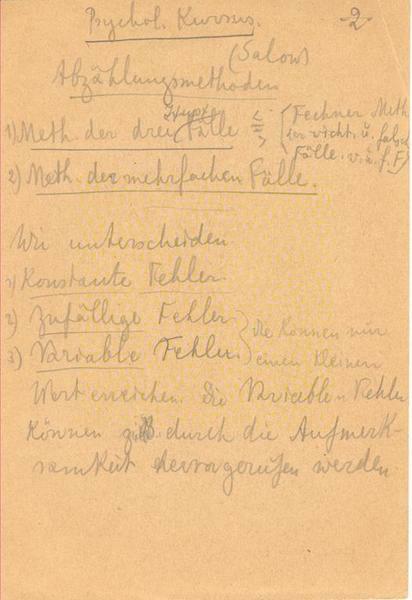 Psychol. Kursus.
-2-
(Salow)
Abzählungsmethoden
Haupt
1) Meth. der drei Fälle < = > (Fechner Meth
der richt. u. falsch
Fälle. r. u. f. F)
2) Meth. der mehrfachen Fälle.
Wir unterscheiden
1) Konstante Fehler.
2) Zufällige Fehler
3) Variable Fehler
die können nur
einen kleinen
Wert erreichen. Die Variablen Fehler
können z.B. durch die Aufmerk-
samkeit hervorgerufen werden